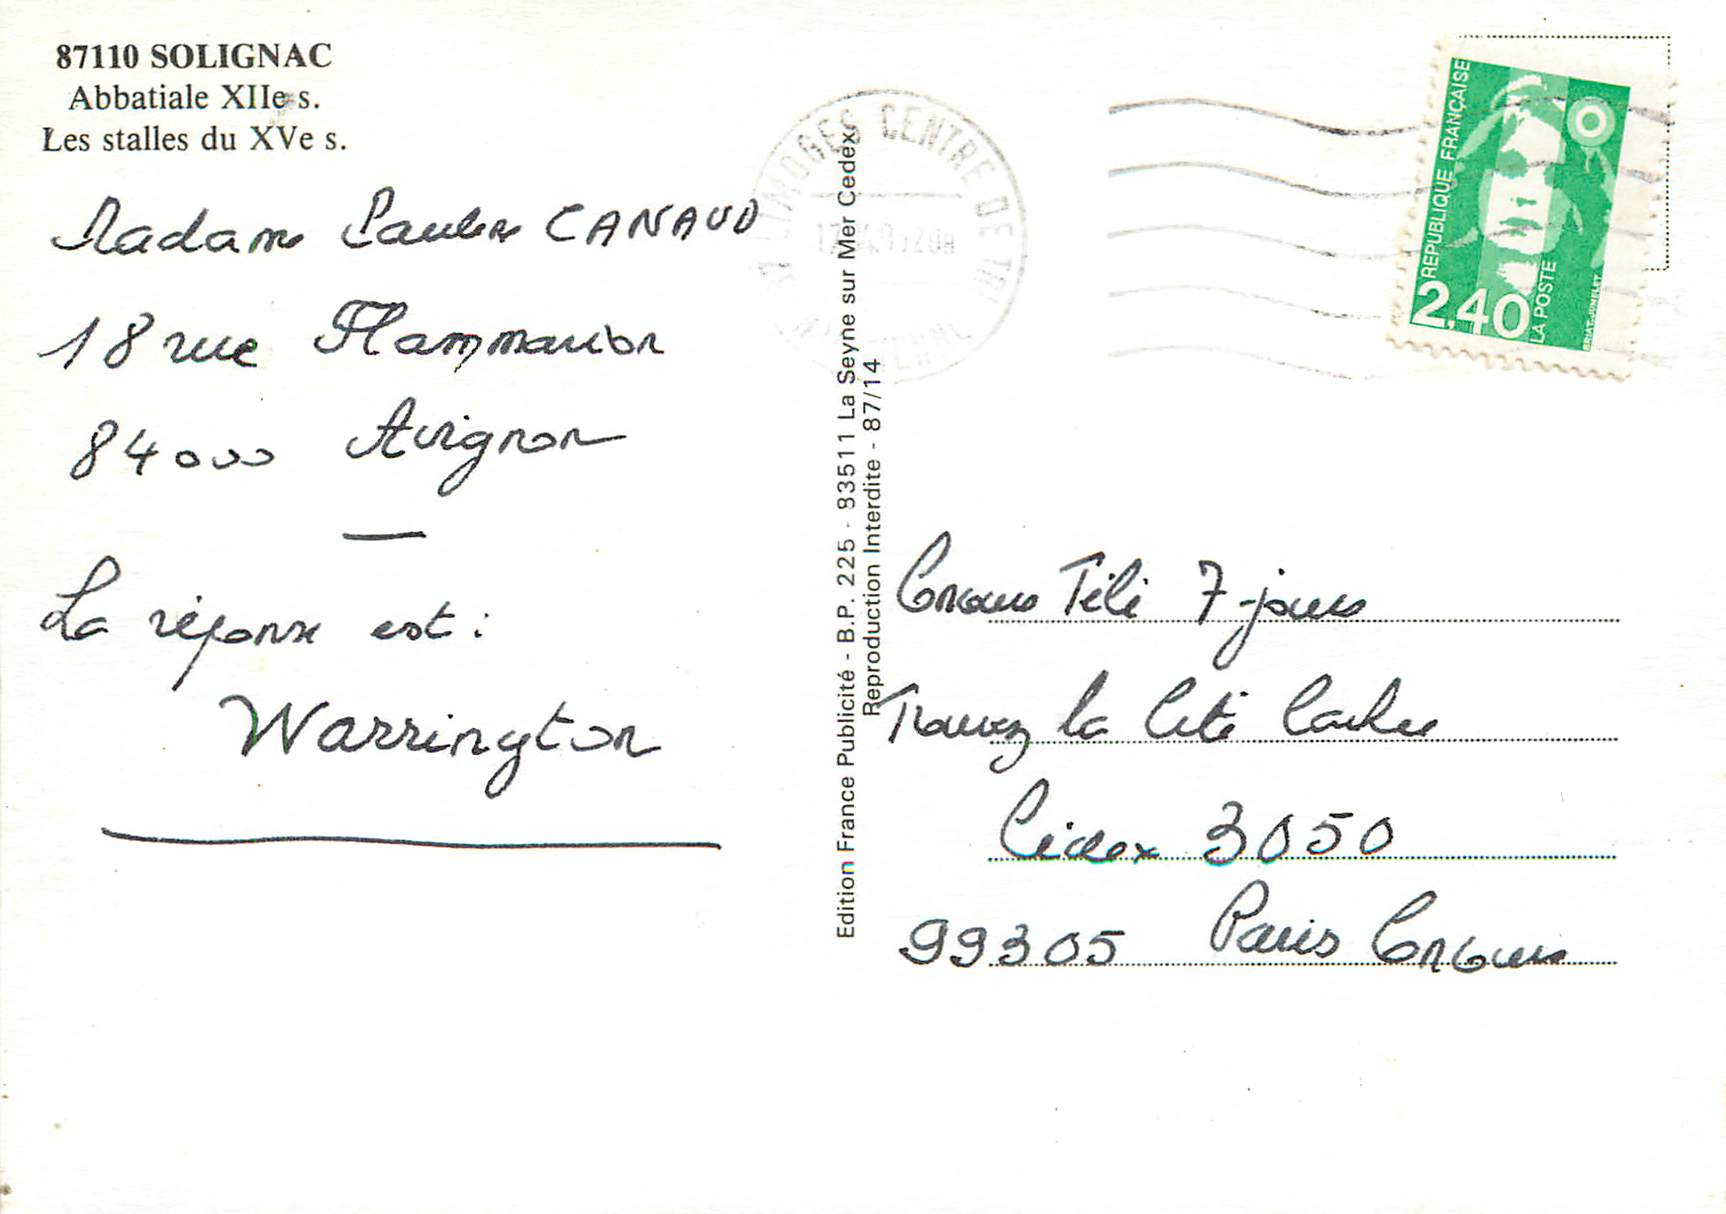 87110 SOLIGNAC
Abbatiale XIIe s.
Les stalles du XVe s.
Madame Paulette CANAUD
18 rue Flammarion
84000 Avignon
La réponse est :
Warrington
Edition France Publicité - B.P. 225 - 83511 La Seyne sur Mer Cedex
Reproduction Interdite - 87/14
LIMOGES CENTRE DE TRI
REPUBLIQUE FRANÇAISE
2,40
LA POSTE
BRIAT-JUMELET
Concours Télé 7-jours
Trouvez la Cité Cachée
Cidex 3050
99305 Paris Concours